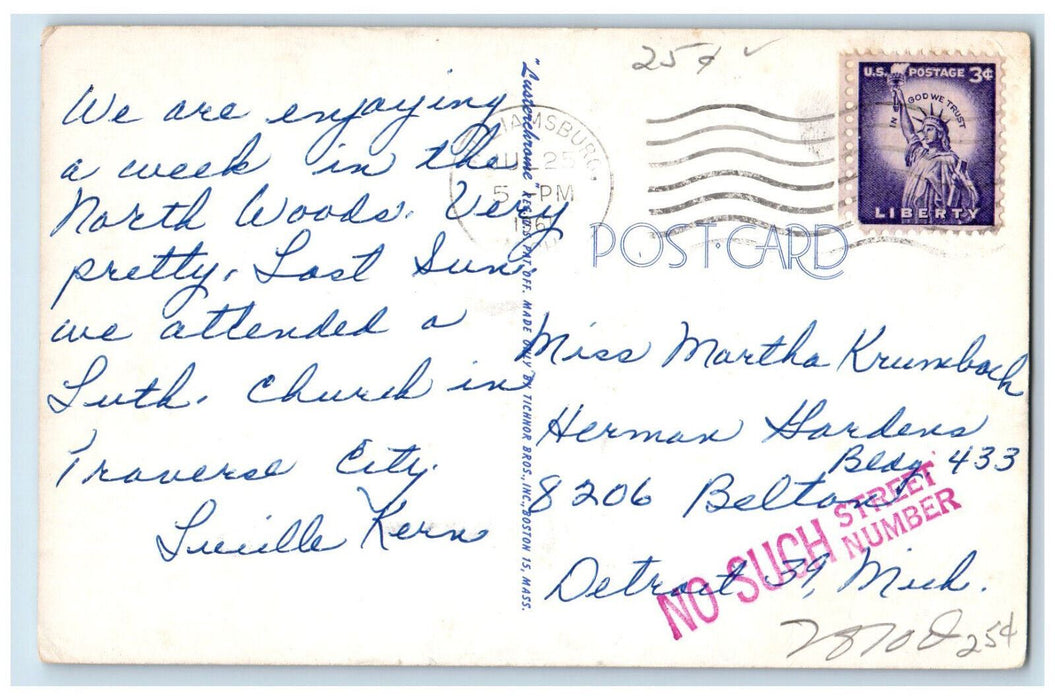 We are enjoying
a week in the
North Woods. Very
pretty. Last Sun.
we attended a
Luth. Church in
Traverse City.
Lucille Kern
"Lusterchrome" REG. U.S. PAT. OFF. MADE ONLY BY TICHNOR BROS., INC., BOSTON 15, MASS.
25¢
JUL 25
5 PM
U.S. POSTAGE 3¢
IN GOD WE TRUST
LIBERTY
POST CARD
Miss Martha Krumbach
Herman Gardens
Bldg. 433
8206 Belton
Detroit 39, Mich.
NO SUCH STREET NUMBER
25¢